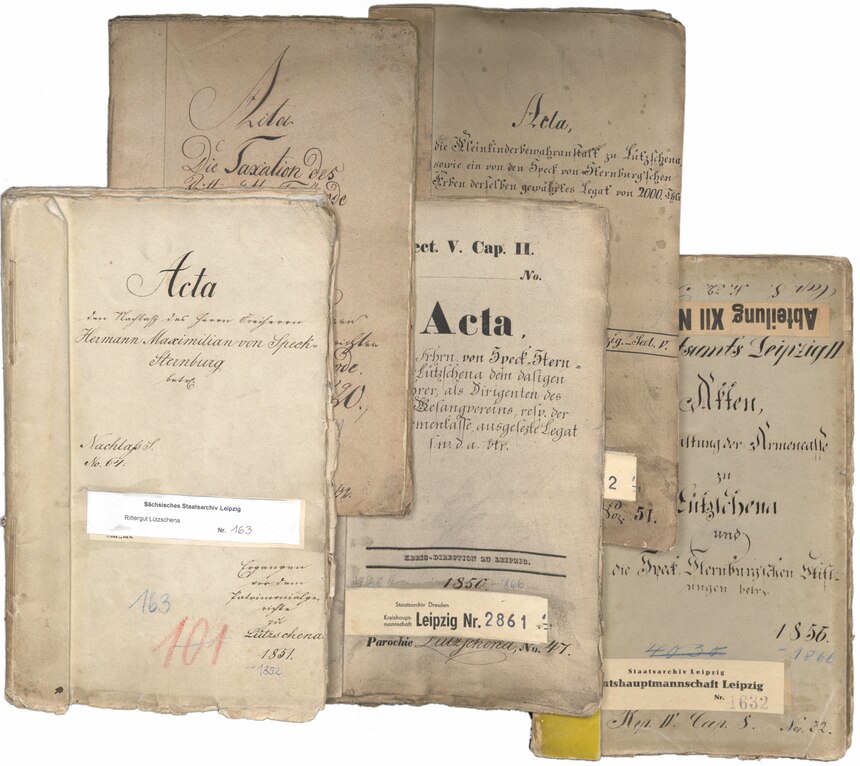 Acta
Die Taxation des
Acta,
die Kleinkinderbewahranstalt zu Lützschena,
sowie ein von den Speck von Sternburg'schen
Erben derselben gewährtes Legat von 2000. Thlr
Acta
den Nachlaß des Herrn Freiherrn
Hermann Maximilian von Speck-
Sternburg
betr.
Nachlaß S.
No. 64.
Sächsisches Staatsarchiv Leipzig
Rittergut Lützschena
Nr. 163
Ergangen
vor dem
Patrimonialge-
richte
zu
Lützschena
1851.
-1852
163
101
ect. V. Cap. II.
No.
Acta,
Frhrn. von Speck-Stern-
Lützschena dem dasigen
hrer, als Dirigenten des
Gesangvereins, resp. der
menkasse, ausgesetzte Legat
s.w.d.a. btr.
KREIS-DIRECTION ZU LEIPZIG.
1850. -1866
Staatsarchiv Dresden
Kreishaupt-
mannschaft Leipzig Nr. 2861
Parochie Lützschena, No. 47.
20.
Sect. V.
2
51.
Abteilung XII N
tsamts Leipzig II
Akten,
altung der Armencasse
zu
Lützschena
und
die Speck Sternburg'schen Stift-
ungen betr.
1856.
-1866
Staatsarchiv Leipzig
tshauptmannschaft Leipzig
Nr. 1632
Rep. IV. Cap. 8. No. 32.